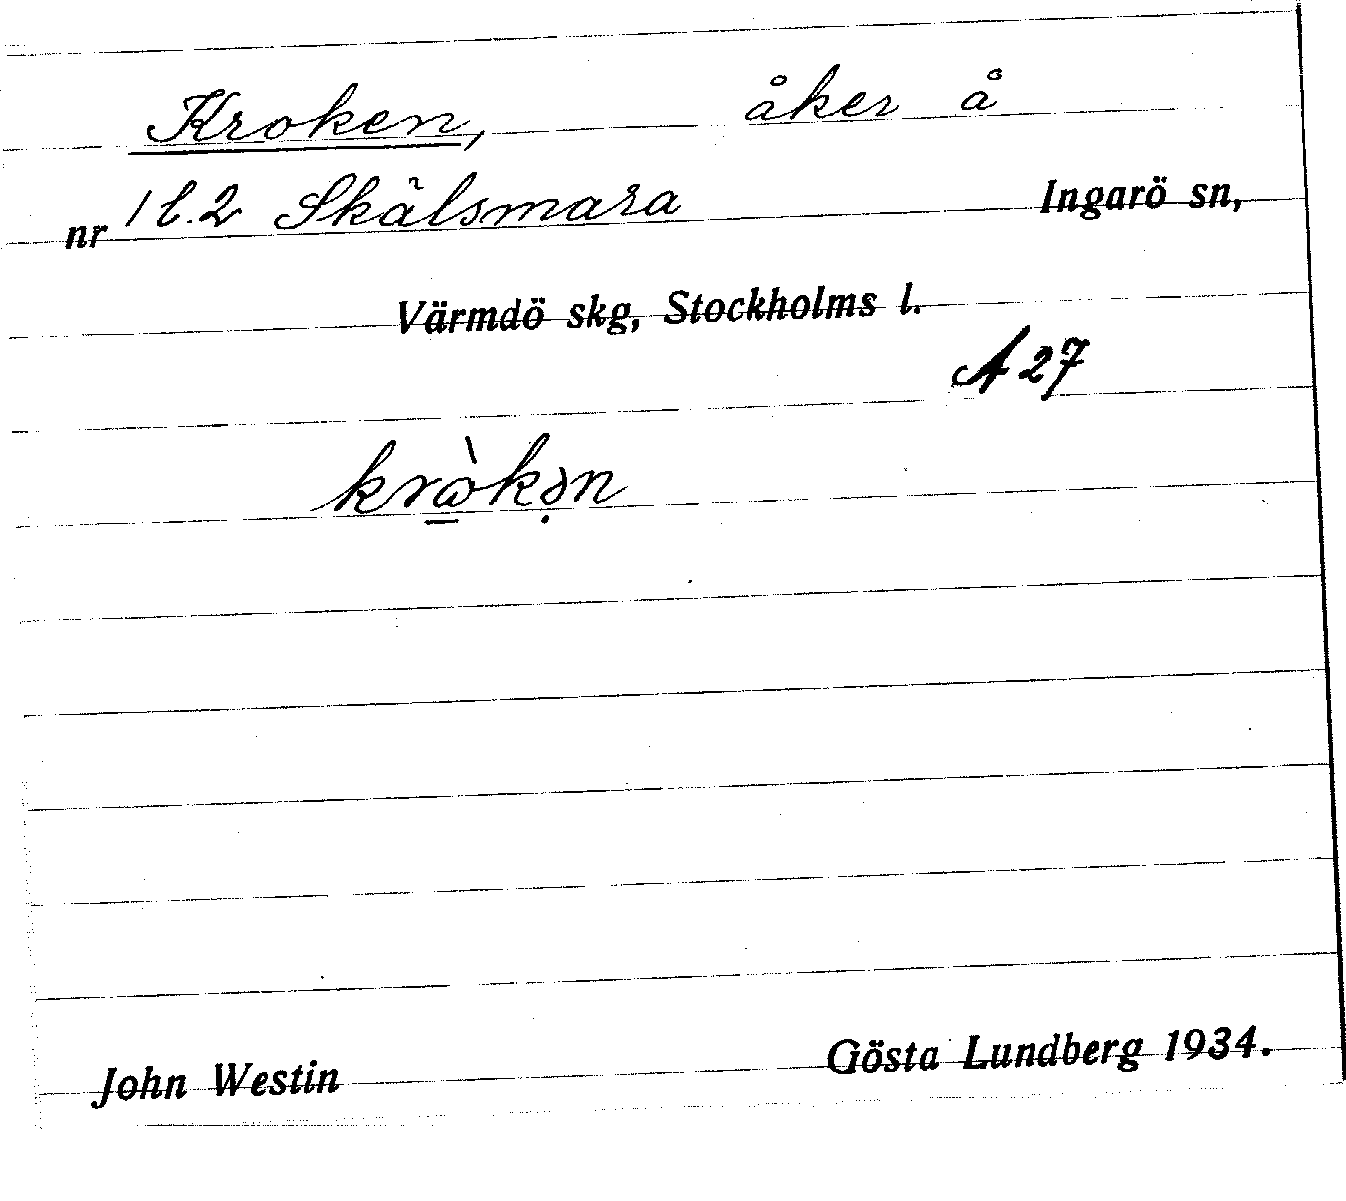 Kroken, åker å
nr 1 l. 2 Skälsmara Ingarö sn,
Värmdö skg, Stockholms l.
A 27
krὼkən
John Westin Gösta Lundberg 1934.